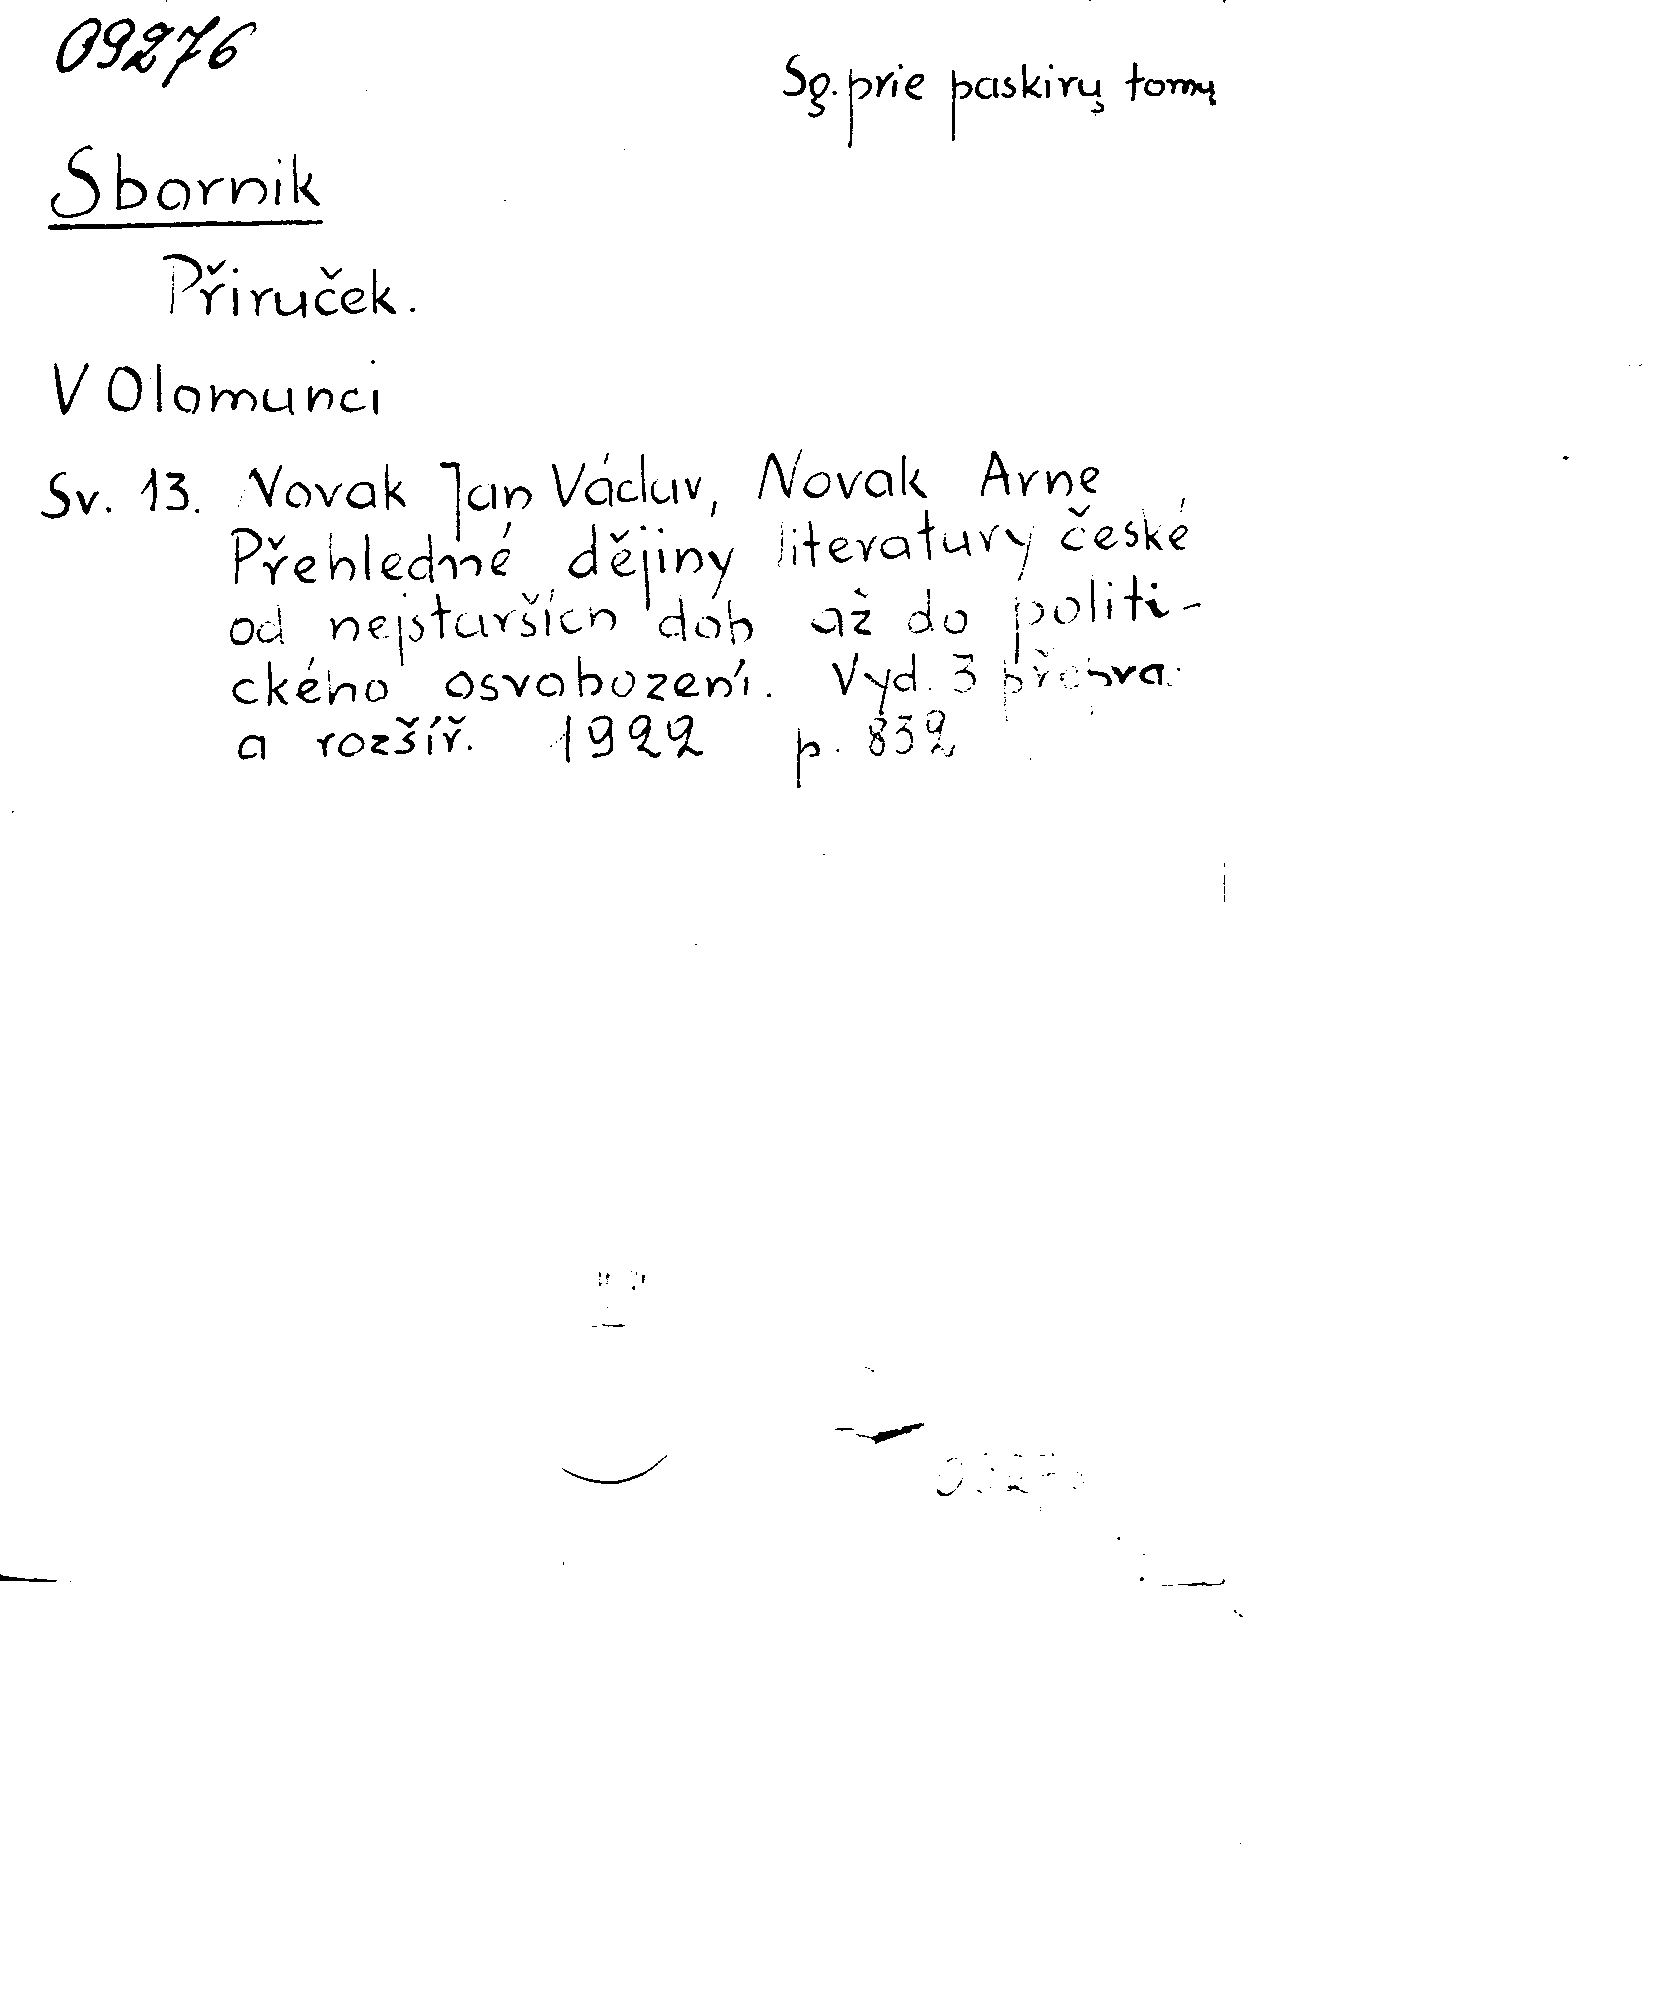 09276
Sg. prie paskirų tomų
Sbornik
Přiruček.
V Olomunci
Sv. 13. Novak Jan Václav, Novak Arne
Přehledné dějiny literatury české
od nejstarších dob až do politi-
ckého osvobození. Vyd. 3
a rozšíř. 1922 p. 832